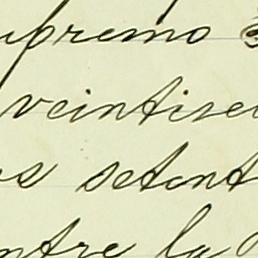 upremo
veintisei
os setent
ntre la